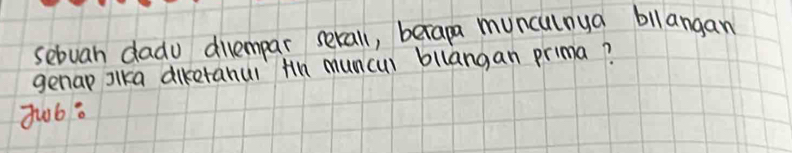 sebuah dadu dilempar sekali, berapa munculnya bilangan
genap jika diketahui tlh muncul bilangan prima?
Jwb: